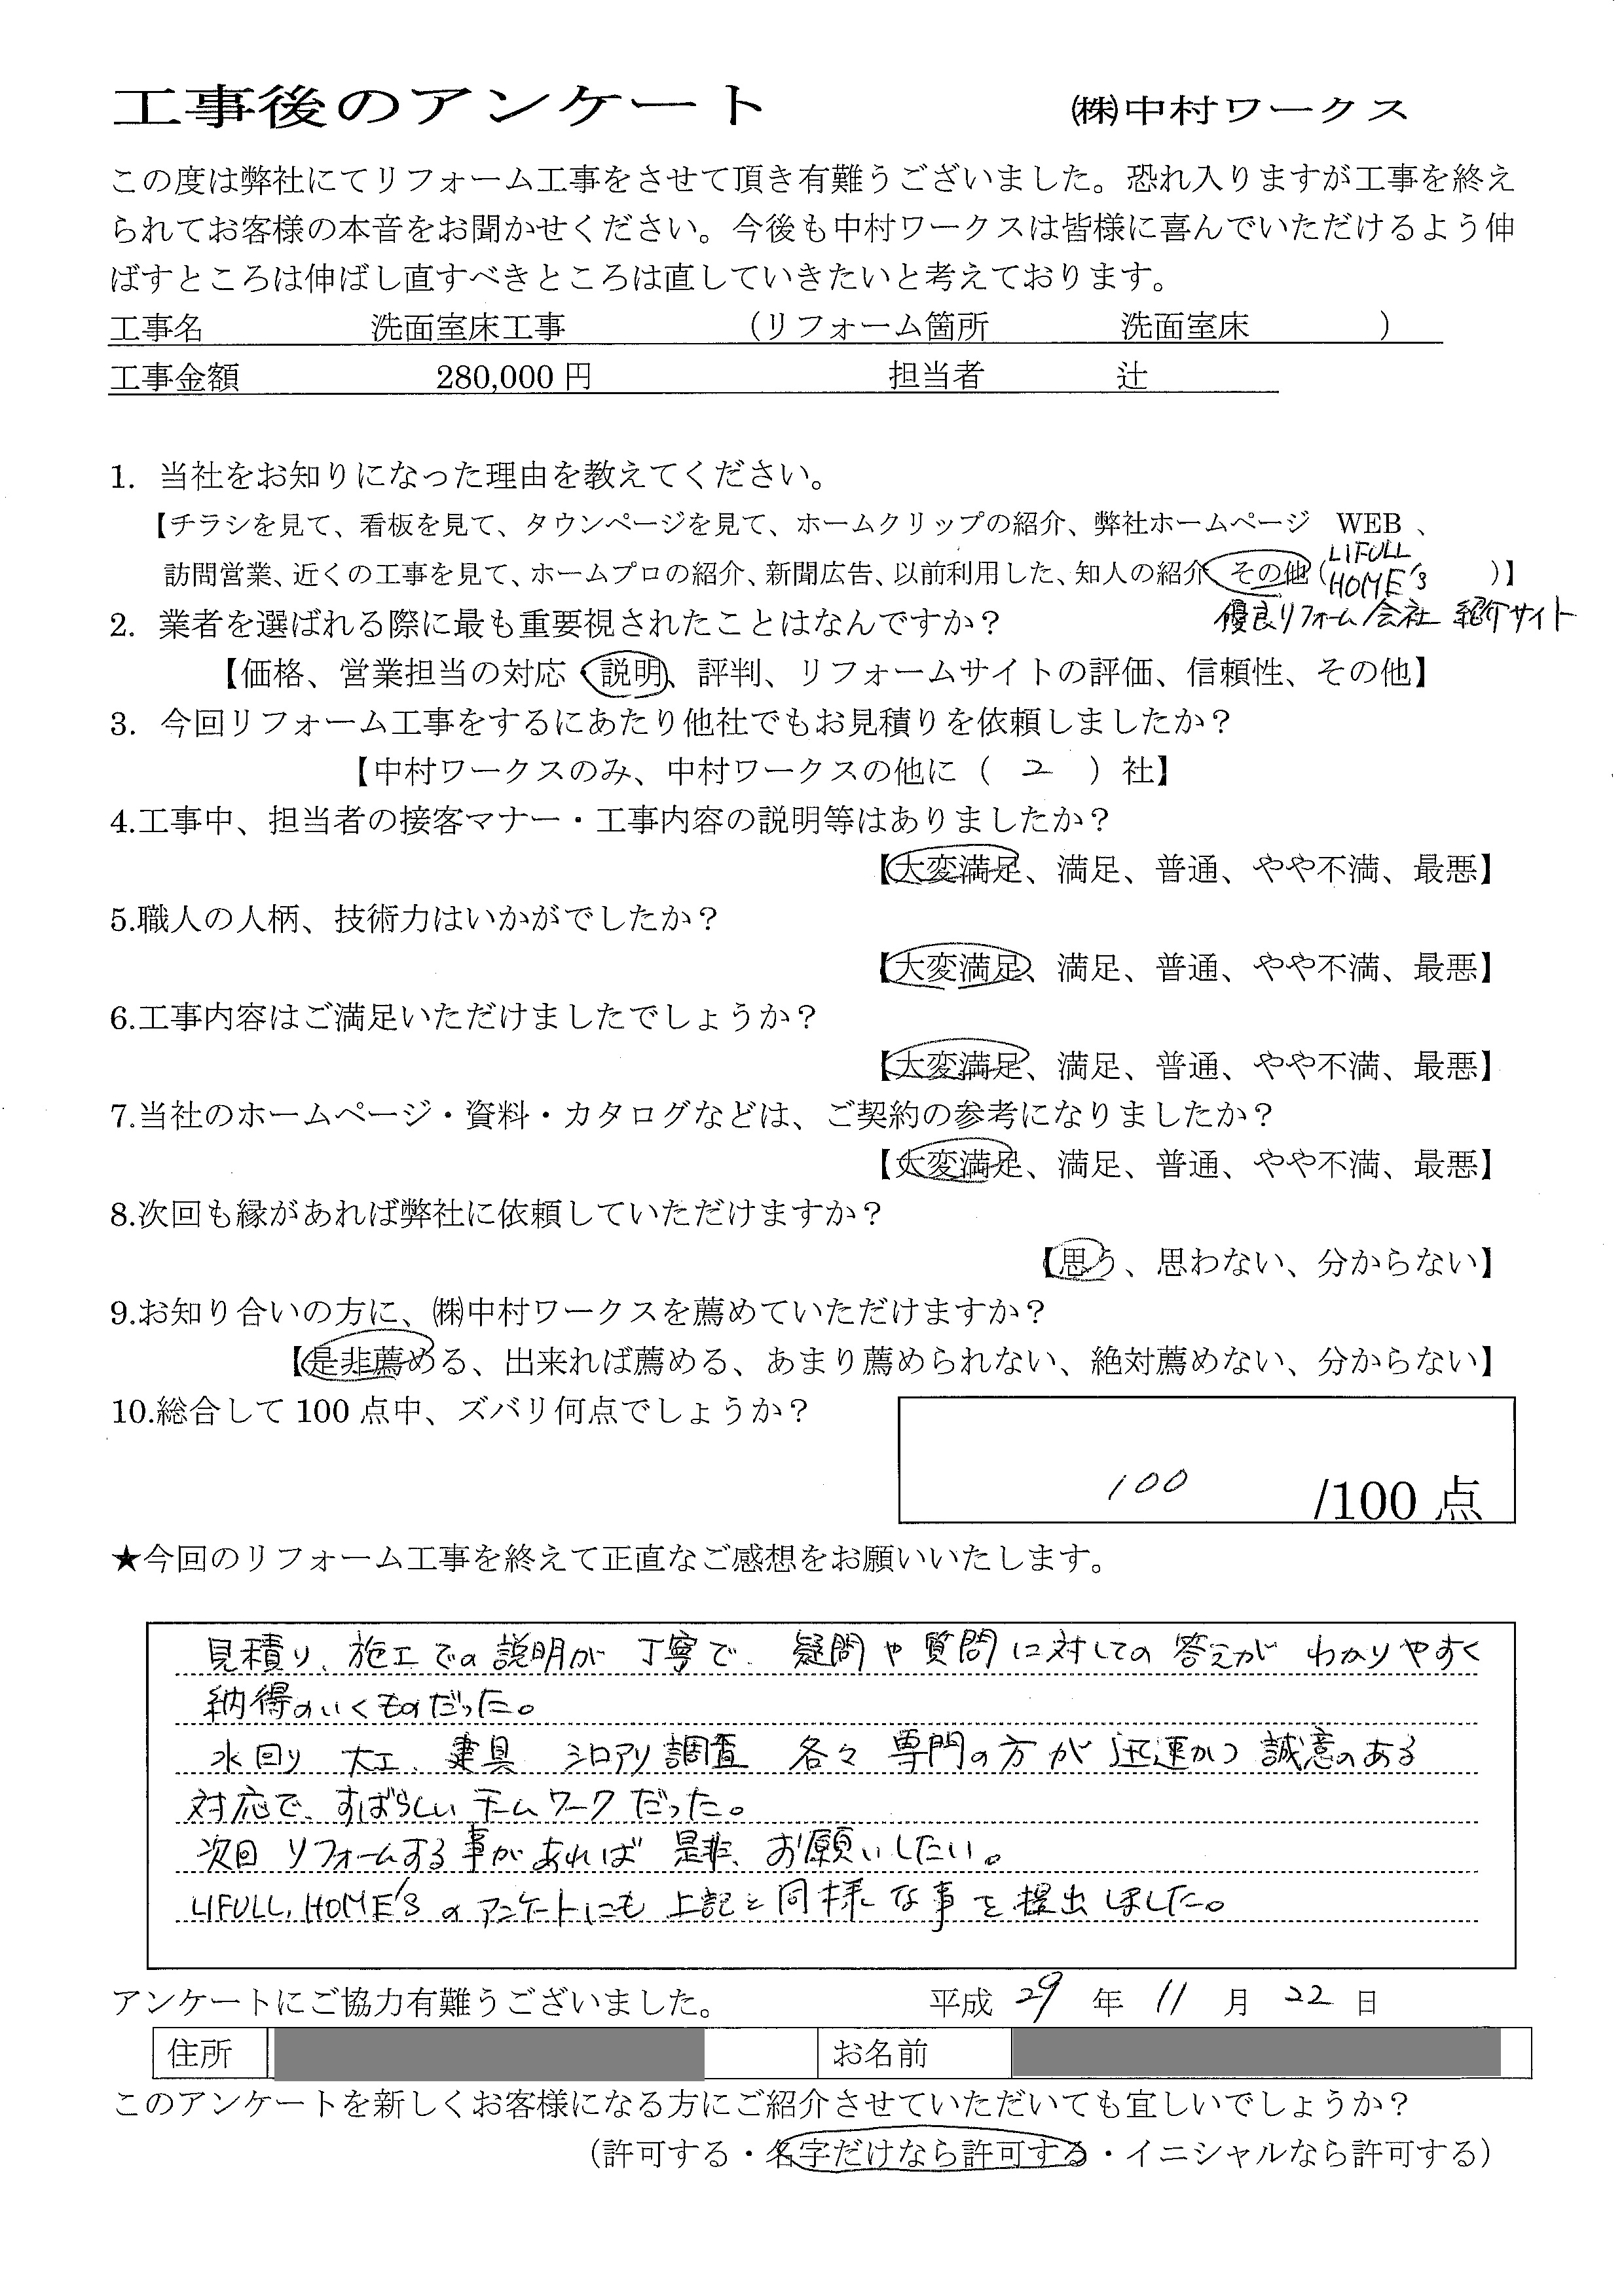 工事後のアンケート ㈱中村ワークス
この度は弊社にてリフォーム工事をさせて頂き有難うございました。恐れ入りますが工事を終え
られてお客様の本音をお聞かせください。今後も中村ワークスは皆様に喜んでいただけるよう伸
ばすところは伸ばし直すべきところは直していきたいと考えております。
工事名 洗面室床工事 （リフォーム箇所 洗面室床 ）
工事金額 280,000 円 担当者 辻
1. 当社をお知りになった理由を教えてください。
【チラシを見て、看板を見て、タウンページを見て、ホームクリップの紹介、弊社ホームページ WEB 、
訪問営業、近くの工事を見て、ホームプロの紹介、新聞広告、以前利用した、知人の紹介、その他（LIFULL HOME'S ）】
優良リフォーム会社 紹介サイト
2. 業者を選ばれる際に最も重要視されたことはなんですか？
【価格、営業担当の対応・説明、評判、リフォームサイトの評価、信頼性、その他】
3. 今回リフォーム工事をするにあたり他社でもお見積りを依頼しましたか？
【中村ワークスのみ、中村ワークスの他に（ 2 ）社】
4.工事中、担当者の接客マナー・工事内容の説明等はありましたか？
【大変満足、満足、普通、やや不満、最悪】
5.職人の人柄、技術力はいかがでしたか？
【大変満足、満足、普通、やや不満、最悪】
6.工事内容はご満足いただけましたでしょうか？
【大変満足、満足、普通、やや不満、最悪】
7.当社のホームページ・資料・カタログなどは、ご契約の参考になりましたか？
【大変満足、満足、普通、やや不満、最悪】
8.次回も縁があれば弊社に依頼していただけますか？
【思う、思わない、分からない】
9.お知り合いの方に、㈱中村ワークスを薦めていただけますか？
【是非薦める、出来れば薦める、あまり薦められない、絶対薦めない、分からない】
10.総合して 100 点中、ズバリ何点でしょうか？
100 /100 点
★今回のリフォーム工事を終えて正直なご感想をお願いいたします。
見積り、施工での説明が 丁寧で、疑問や質問に対しての答えが わかりやすく
納得のいくものだった。
水回り 大工、建具 シロアリ調査 各々専門の方が迅速かつ誠意のある
対応で、すばらしいチームワークだった。
次回 リフォームする事があれば 是非、お願いしたい。
LIFULL, HOME'S のアンケートにも上記と同様な事を提出しました。
アンケートにご協力有難うございました。 平成 29 年 11 月 22 日
住所 お名前
このアンケートを新しくお客様になる方にご紹介させていただいても宜しいでしょうか？
（許可する・名字だけなら許可する・イニシャルなら許可する）